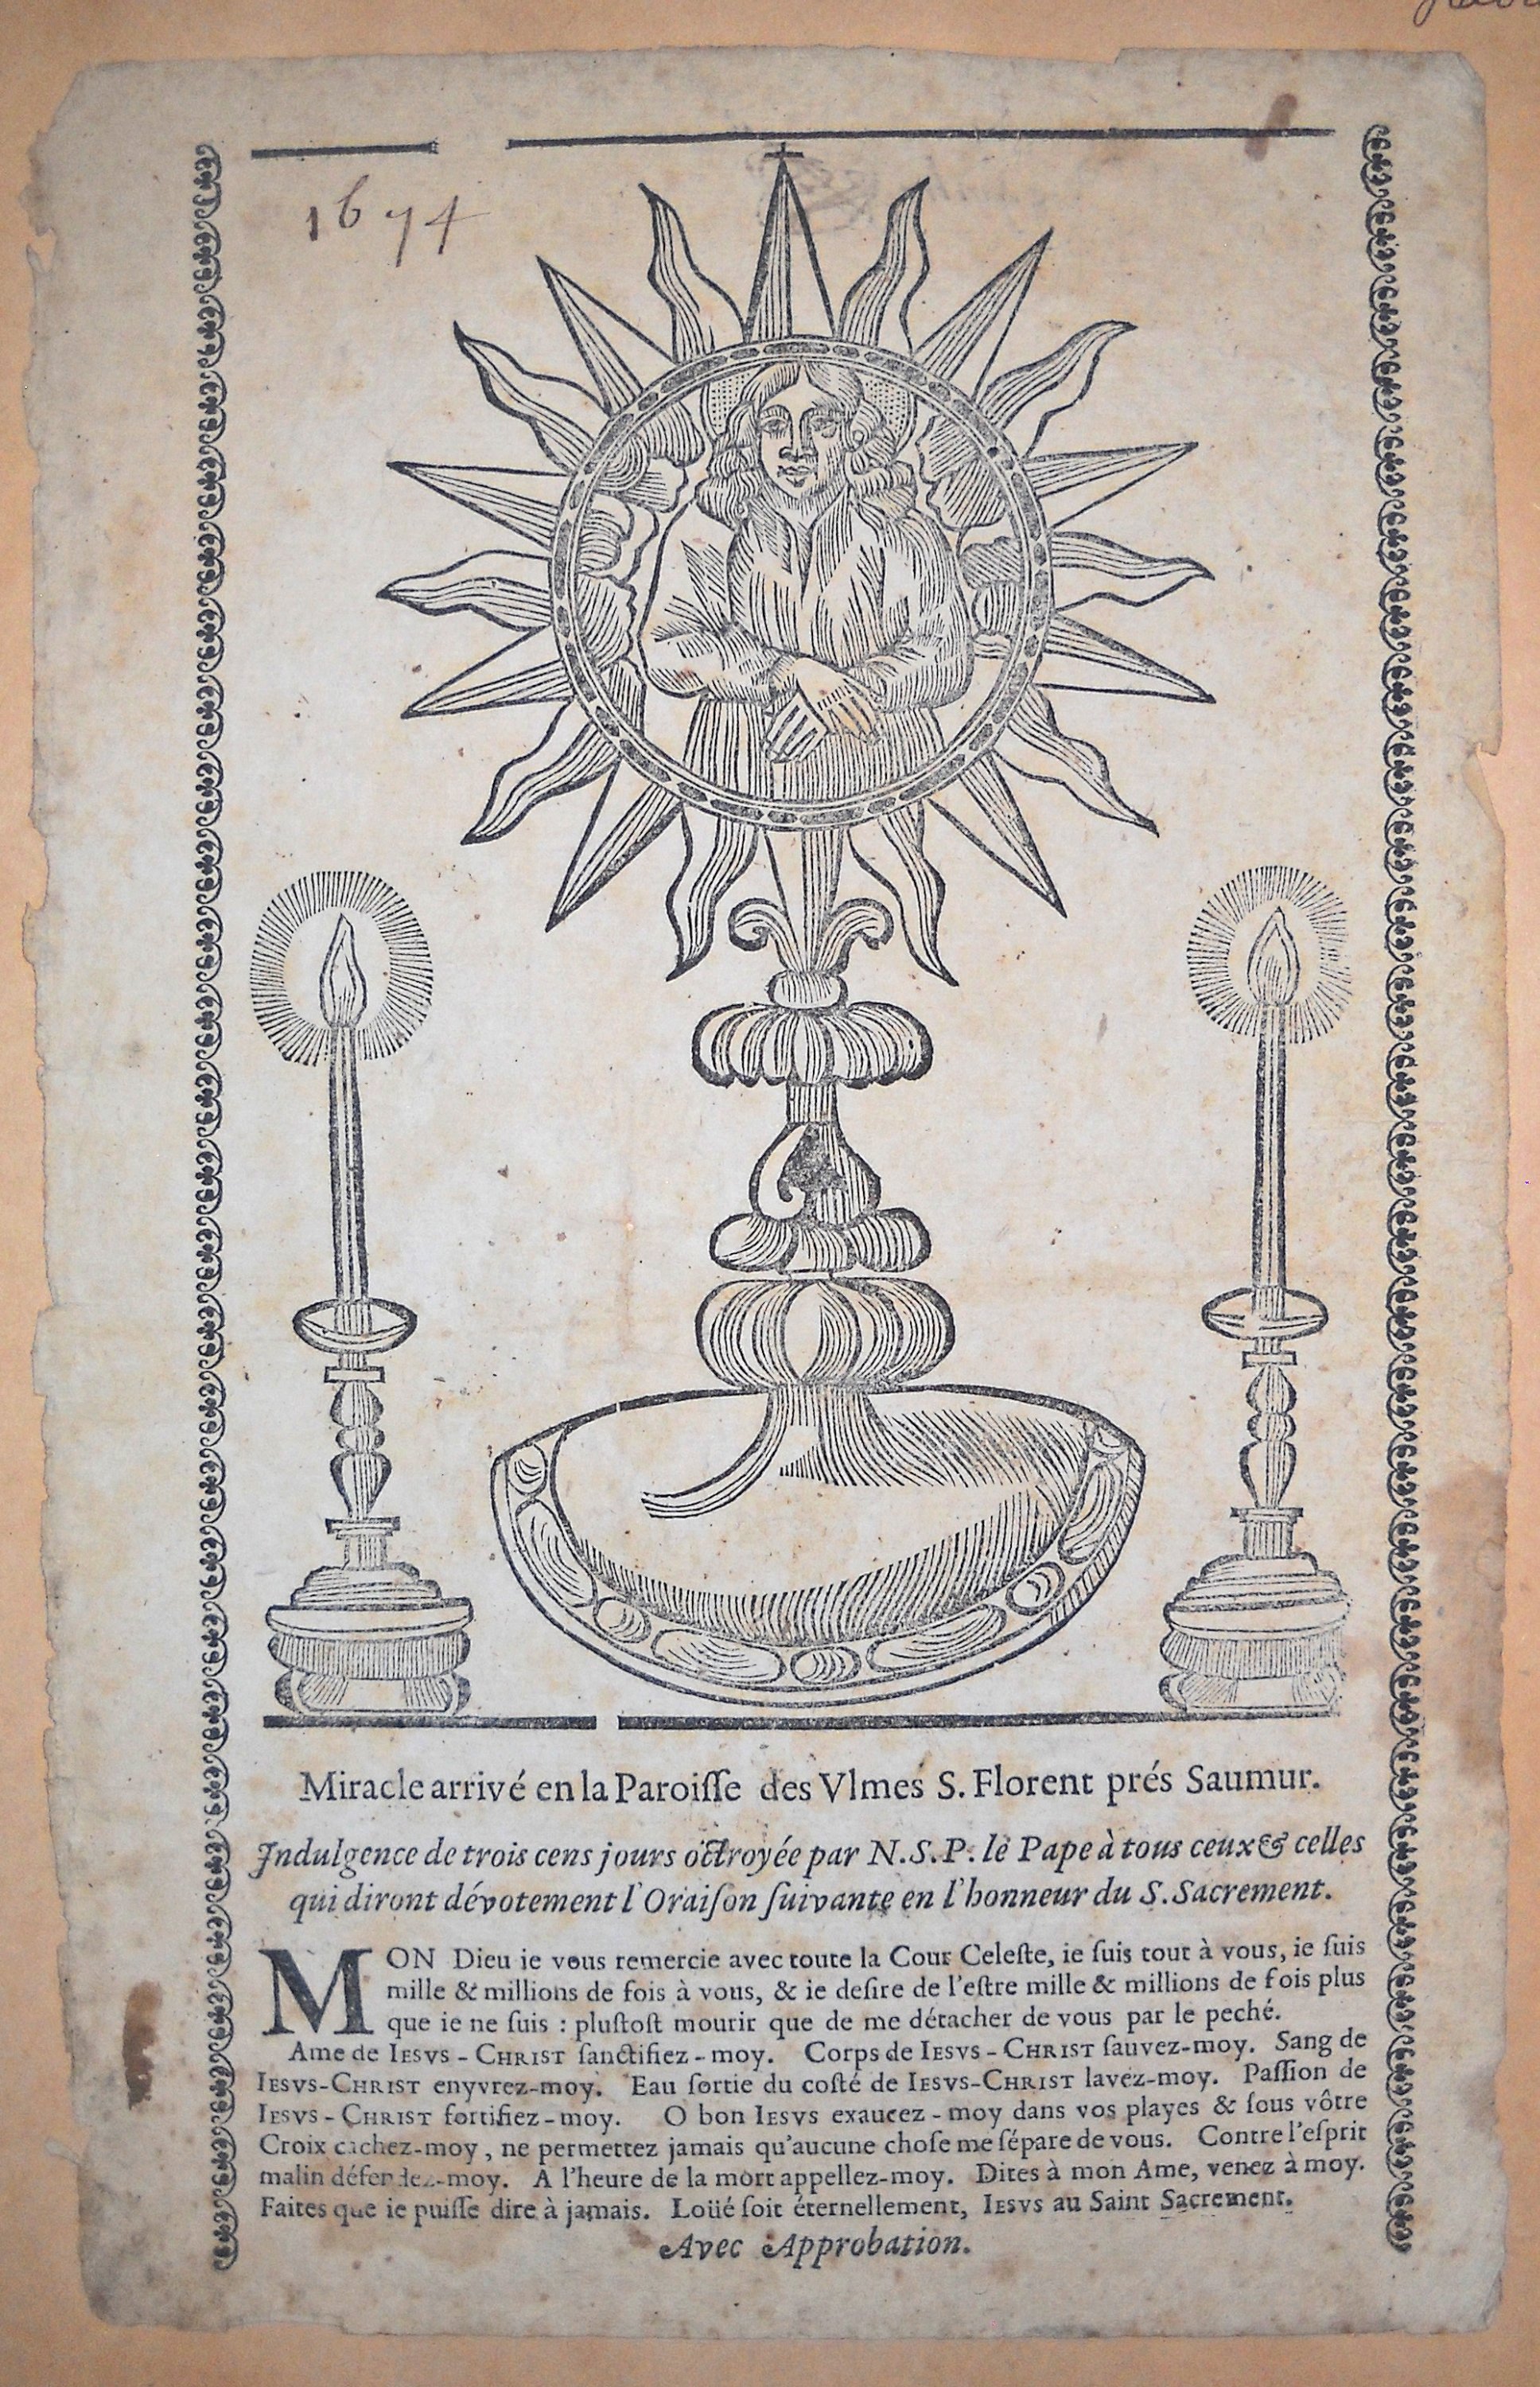 1674
Miracle arrivé en la Paroiſſe des Vlmes S. Florent prés Saumur.
Indulgence de trois cens jours octroyée par N.S.P. le Pape à tous ceux & celles
qui diront dévotement l'Oraiſon ſuivante en l'honneur du S. Sacrement.
MON Dieu ie vous remercie avec toute la Cour Celeſte, ie ſuis tout à vous, ie ſuis
mille & millions de fois à vous, & ie deſire de l'eſtre mille & millions de fois plus
que ie ne ſuis : pluſtoſt mourir que de me détacher de vous par le peché.
Ame de IESVS-CHRIST ſanctifiez-moy. Corps de IESVS-CHRIST ſauvez-moy. Sang de
IESVS-CHRIST enyvrez-moy. Eau ſortie du coſté de IESVS-CHRIST lavez-moy. Paſſion de
IESVS-CHRIST fortifiez-moy. O bon IESVS exaucez-moy dans vos playes & ſous vôtre
Croix cachez-moy, ne permettez jamais qu'aucune choſe me ſépare de vous. Contre l'eſprit
malin défendez-moy. A l'heure de la mort appellez-moy. Dites à mon Ame, venez à moy.
Faites que ie puiſſe dire à jamais. Loüé ſoit éternellement, IESVS au Saint Sacrement.
Avec Approbation.